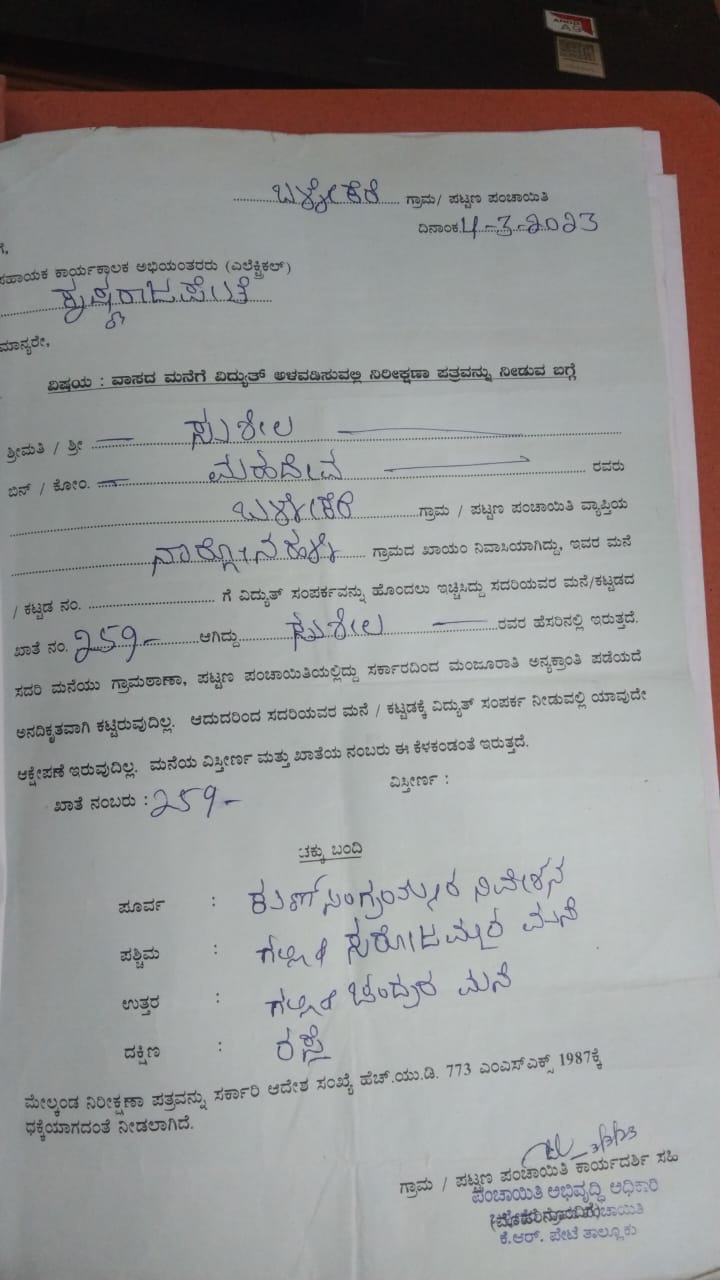 ಬಳ್ಳೇಕೆರೆ ಗ್ರಾಮ/ ಪಟ್ಟಣ ಪಂಚಾಯಿತಿ
ದಿನಾಂಕ 4-3-2023
ಗೆ,
ಸಹಾಯಕ ಕಾರ್ಯಕಾಲಕ ಅಭಿಯಂತರರು (ಎಲೆಕ್ಟ್ರಿಕಲ್)
ಕೃಷ್ಣರಾಜಪೇಟೆ
ಮಾನ್ಯರೇ,
ವಿಷಯ : ವಾಸದ ಮನೆಗೆ ವಿದ್ಯುತ್ ಅಳವಡಿಸುವಲ್ಲಿ ನಿರೀಕ್ಷಣಾ ಪತ್ರವನ್ನು ನೀಡುವ ಬಗ್ಗೆ
ಶ್ರೀಮತಿ / ಶ್ರೀ ಸುಶೀಲ
ಬಿನ್ / ಕೋಂ. ಮಹದೇವ ರವರು
ಬಳ್ಳೇಕೆರೆ ಗ್ರಾಮ / ಪಟ್ಟಣ ಪಂಚಾಯಿತಿ ವ್ಯಾಪ್ತಿಯ
ಗ್ರಾಮದ ಖಾಯಂ ನಿವಾಸಿಯಾಗಿದ್ದು, ಇವರ ಮನೆ
/ ಕಟ್ಟಡ ನಂ. ಗೆ ವಿದ್ಯುತ್ ಸಂಪರ್ಕವನ್ನು ಹೊಂದಲು ಇಚ್ಚಿಸಿದ್ದು ಸದರಿಯವರ ಮನೆ/ಕಟ್ಟಡದ
ಖಾತೆ ನಂ. 259- ಆಗಿದ್ದು ಸುಶೀಲ ರವರ ಹೆಸರಿನಲ್ಲಿ ಇರುತ್ತದೆ.
ಸದರಿ ಮನೆಯು ಗ್ರಾಮಠಾಣಾ, ಪಟ್ಟಣ ಪಂಚಾಯಿತಿಯಲ್ಲಿದ್ದು ಸರ್ಕಾರದಿಂದ ಮಂಜೂರಾತಿ ಅನ್ಯಕ್ರಾಂತಿ ಪಡೆಯದೆ
ಅನದಿಕೃತವಾಗಿ ಕಟ್ಟಿರುವುದಿಲ್ಲ. ಆದುದರಿಂದ ಸದರಿಯವರ ಮನೆ / ಕಟ್ಟಡಕ್ಕೆ ವಿದ್ಯುತ್ ಸಂಪರ್ಕ ನೀಡುವಲ್ಲಿ ಯಾವುದೇ
ಆಕ್ಷೇಪಣೆ ಇರುವುದಿಲ್ಲ. ಮನೆಯ ವಿಸ್ತೀರ್ಣ ಮತ್ತು ಖಾತೆಯ ನಂಬರು ಈ ಕೆಳಕಂಡಂತೆ ಇರುತ್ತದೆ.
ಖಾತೆ ನಂಬರು : 259- ವಿಸ್ತೀರ್ಣ :
ಚಕ್ಕು ಬಂದಿ
ಪೂರ್ವ : ನಿವೇಶನ
ಪಶ್ಚಿಮ : ಗಲ್ಲಿ & ಸರೋಜಮ್ಮರ ಮನೆ
ಉತ್ತರ : ಗಲ್ಲಿ & ಚಂದ್ರರ ಮನೆ
ದಕ್ಷಿಣ : ರಸ್ತೆ
ಮೇಲ್ಕಂಡ ನಿರೀಕ್ಷಣಾ ಪತ್ರವನ್ನು ಸರ್ಕಾರಿ ಆದೇಶ ಸಂಖ್ಯೆ ಹೆಚ್.ಯು.ಡಿ. 773 ಎಂಎಸ್ಎಕ್ಸ್ 1987ಕ್ಕೆ
ಧಕ್ಕೆಯಾಗದಂತೆ ನೀಡಲಾಗಿದೆ.
ಗ್ರಾಮ / ಪಟ್ಟಣ ಪಂಚಾಯಿತಿ ಕಾರ್ಯದರ್ಶಿ ಸಹಿ
ಪಂಚಾಯಿತಿ ಅಭಿವೃದ್ಧಿ ಅಧಿಕಾರಿ
ಕೆ.ಆರ್. ಪೇಟೆ ತಾಲ್ಲೂಕು